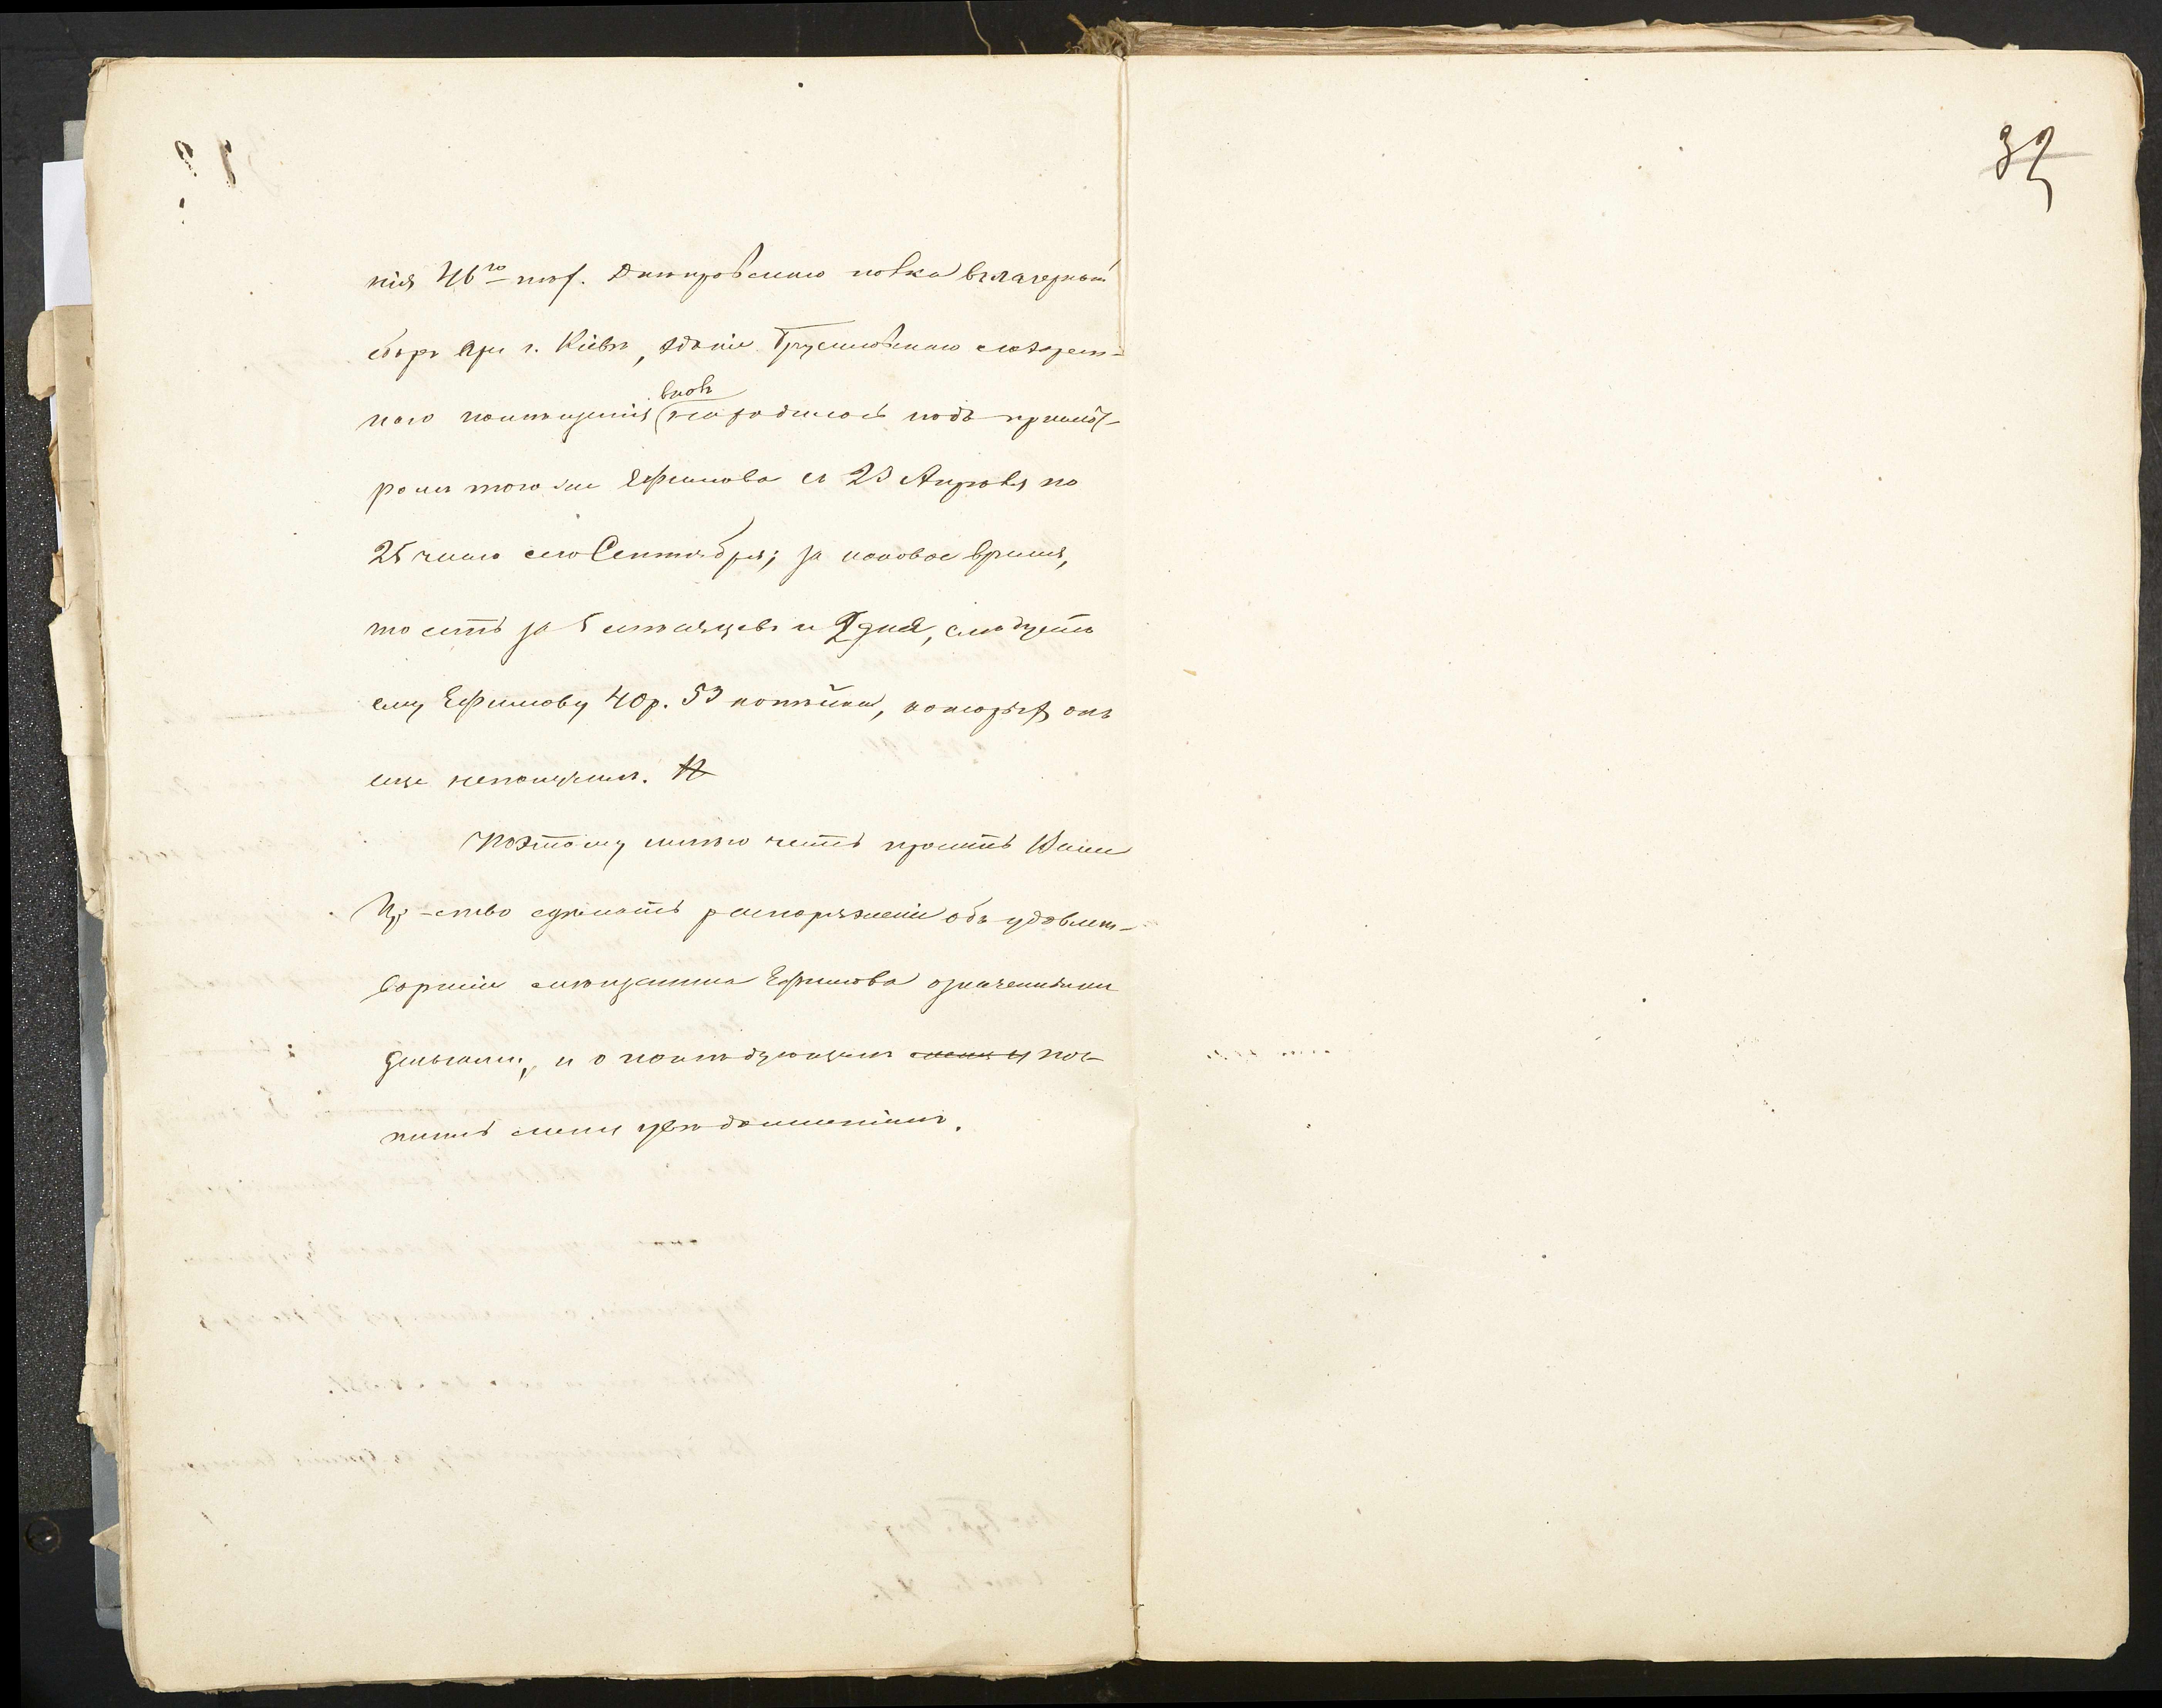 32
нія 46го пѣх. Днѣпровскаго полка въ лагерный
сборъ при г. Кіевѣ, зданіе Брусиловскаго лазарет-
наго помѣщенія вновь находилось подъ присмот-
ромъ того же Ефимова съ 23 Апрѣля по
25 число сего Сентября; за каковое время,
то есть за 5 мѣсяцевъ и 2 дня, слѣдуетъ
ему Ефимову 40 р. 53 копѣйки, которыя онъ
еще не получилъ.
Поэтому имѣю честь просить Ваше
Пр-ство сдѣлать распоряженіе объ удовлет-
вореніи мѣщанина Ефимова означенными
деньгами, и о послѣдующемъ поч-
тить меня увѣдомленіемъ.